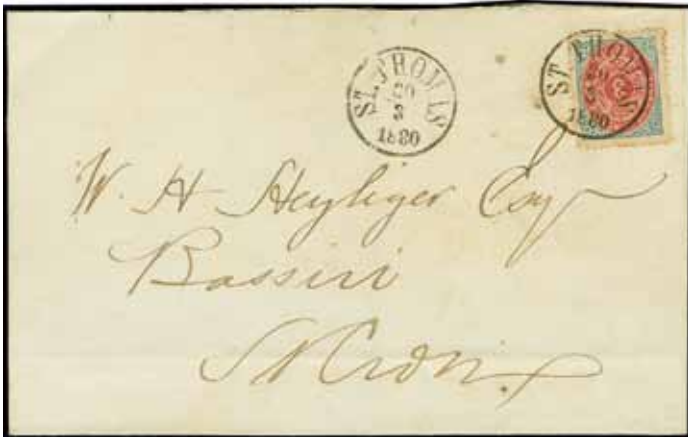 ST. THOMAS
20
3
1880
ST. THOMAS
20
3
1880
3
W. H Heyliger Esq
Bassin
St Croix.